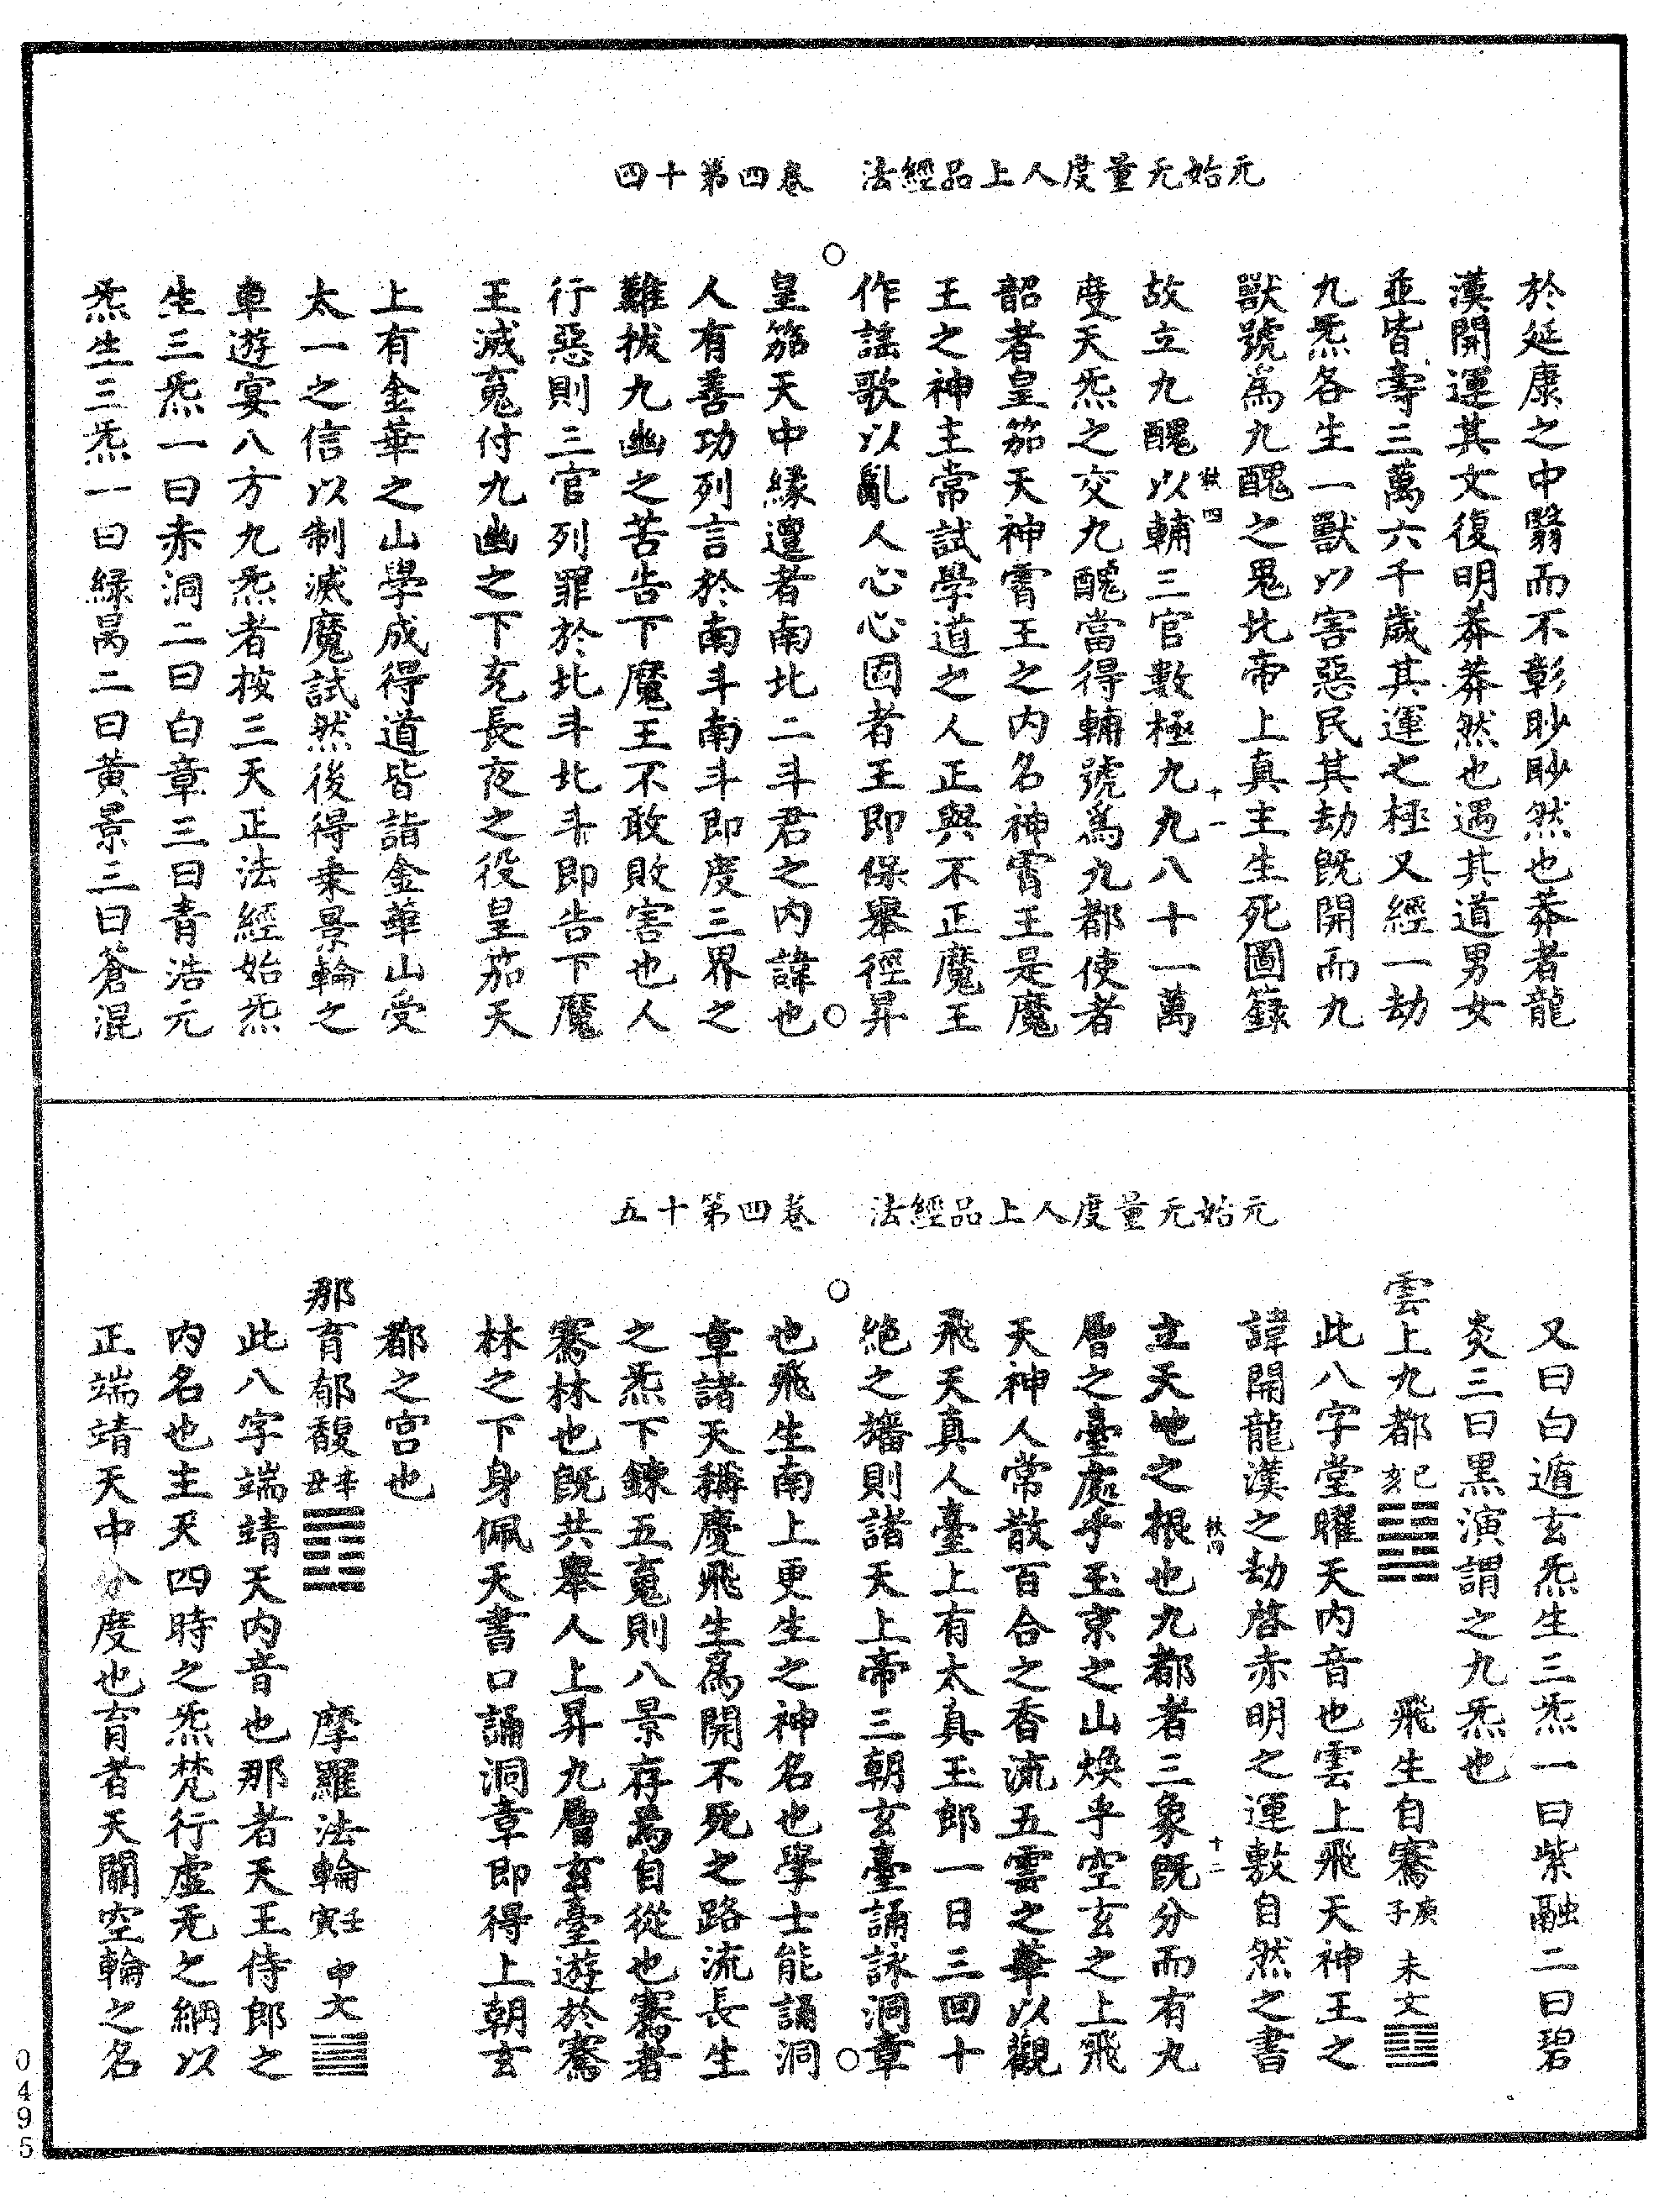 元始无量度人上品經法　卷四第十四
於延康之中翳而不彰眇眇然也莽者龍
漢開運其文復明莽莽然也遇其道男女
並皆壽三萬六千歲其運之極又經一劫
九炁各生一獸以害惡民其劫旣開而九
獸號爲九醜之鬼北帝上真主生死圖籙
故立九醜以輔三官數極九九八十一萬
度天炁之交九醜當得輔號爲九都使者
韶者皇笳天神霄王之内名神霄王是魔
王之神主常試學道之人正與不正魔王
作謡歌以亂人心心固者王即保舉徑昇
皇笳天中緣邅者南北二斗君之内諱也
人有善功列言於南斗南斗即度三界之
難拔九幽之苦告下魔王不敢敗害也人
行惡則三官列罪於北斗北斗即告下魔
王滅䰟付九幽之下充長夜之役皇笳天
上有金華之山學成得道皆詣金華山受
太一之信以制滅魔試然後得乗景輪之
車遊宴八方九炁者按三天正法經始炁
生三炁一曰赤洞二曰白章三曰青浩元
炁生三炁一曰緑昺二曰黃景三曰蒼混
元始无量度人上品經法　卷四第十五
又曰白遁玄炁生三炁一曰紫融二曰碧
炎三曰黑演謂之九炁也
雲上九都己亥　飛生自騫庚子 未文
此八字堂曜天内音也雲上飛天神王之
諱開龍漢之劫啓赤明之運敷自然之書
立天地之根也九都者三象旣分而有九
層之臺處乎玉京之山煥乎空玄之上飛
天神人常散百合之香流五雲之華以觀
飛天真人臺上有太真玉郎一日三回十
絶之旛則諸天上帝三朝玄臺誦詠洞章
也飛生南上更生之神名也學士能誦洞
章諸天稱慶飛生爲開不死之路流長生
之炁下錬五䰟則八景存焉自從也騫者
騫林也旣共舉人上昇九層玄臺遊於騫
林之下身佩天書口誦洞章即得上朝玄
都之宫也
那育郁馥辛丑　摩羅法輪壬寅 申文
此八字端靖天内音也那者天王侍郎之
内名也主天四時之炁梵行虚无之綱以
正端靖天中分度也育者天關空輪之名
0495